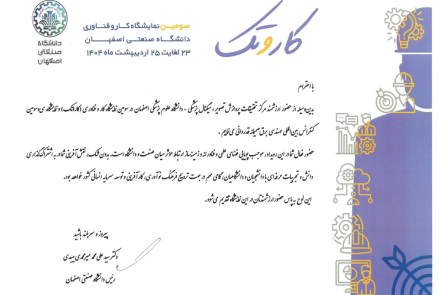 سومین نمایشگاه کار و فناوری
دانشگاه صنعتی اصفهان
۲۳ لغایت ۲۵ اردیبهشت ماه ۱۴۰۴
دانشگاه
صنعتی
اصفهان
کار و تک
با احترام
بدین‌وسیله از حضور ارزشمند مرکز تحقیقات پردازش تصویر و سیگنال پزشکی - دانشگاه علوم پزشکی اصفهان در سومین نمایشگاه کار و فناوری (کاروتک) و نمایشگاه سی و سومین
کنفرانس بین‌المللی مهندسی برق صمیمانه قدردانی می‌نماییم.
حضور فعال شما در این رویداد، موجب پویایی فضای علمی و فناورانه و زمینه‌ساز ارتباط مؤثر میان صنعت و دانشگاه است. بدون شک، نقش‌آفرینی شما در به اشتراک‌گذاری
دانش و تجربیات حرفه‌ای با دانشجویان و دانشگاهیان، گامی مهم در جهت ترویج فرهنگ نوآوری، کارآفرینی و توسعه سرمایه انسانی کشور خواهد بود.
این لوح به پاس حضور ارزشمندتان در این نمایشگاه تقدیم می‌شود.
پیروز و سربلند باشید
دکتر سید علی محمد میرمحمدی میبدی
رئیس دانشگاه صنعتی اصفهان